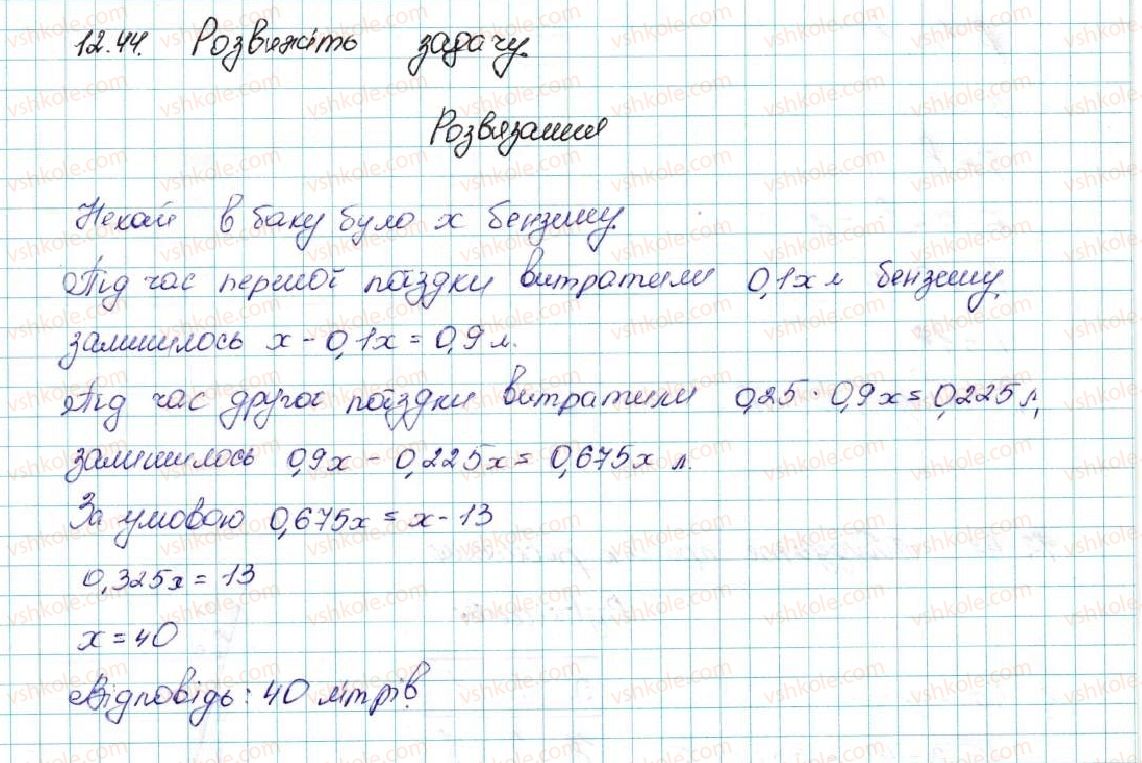 12.44. Розвяжіть задачу.
Розвязання
Нехай в баку було x бензину.
Під час першої поїздки витратили 0,1x л бензину,
залишилось x - 0,1x = 0,9 л.
Під час другої поїздки витратили 0,25 · 0,9x = 0,225 л,
залишилось 0,9x - 0,225x = 0,675x л.
За умовою 0,675x = x - 13
0,325x = 13
x = 40
Відповідь: 40 літрів.